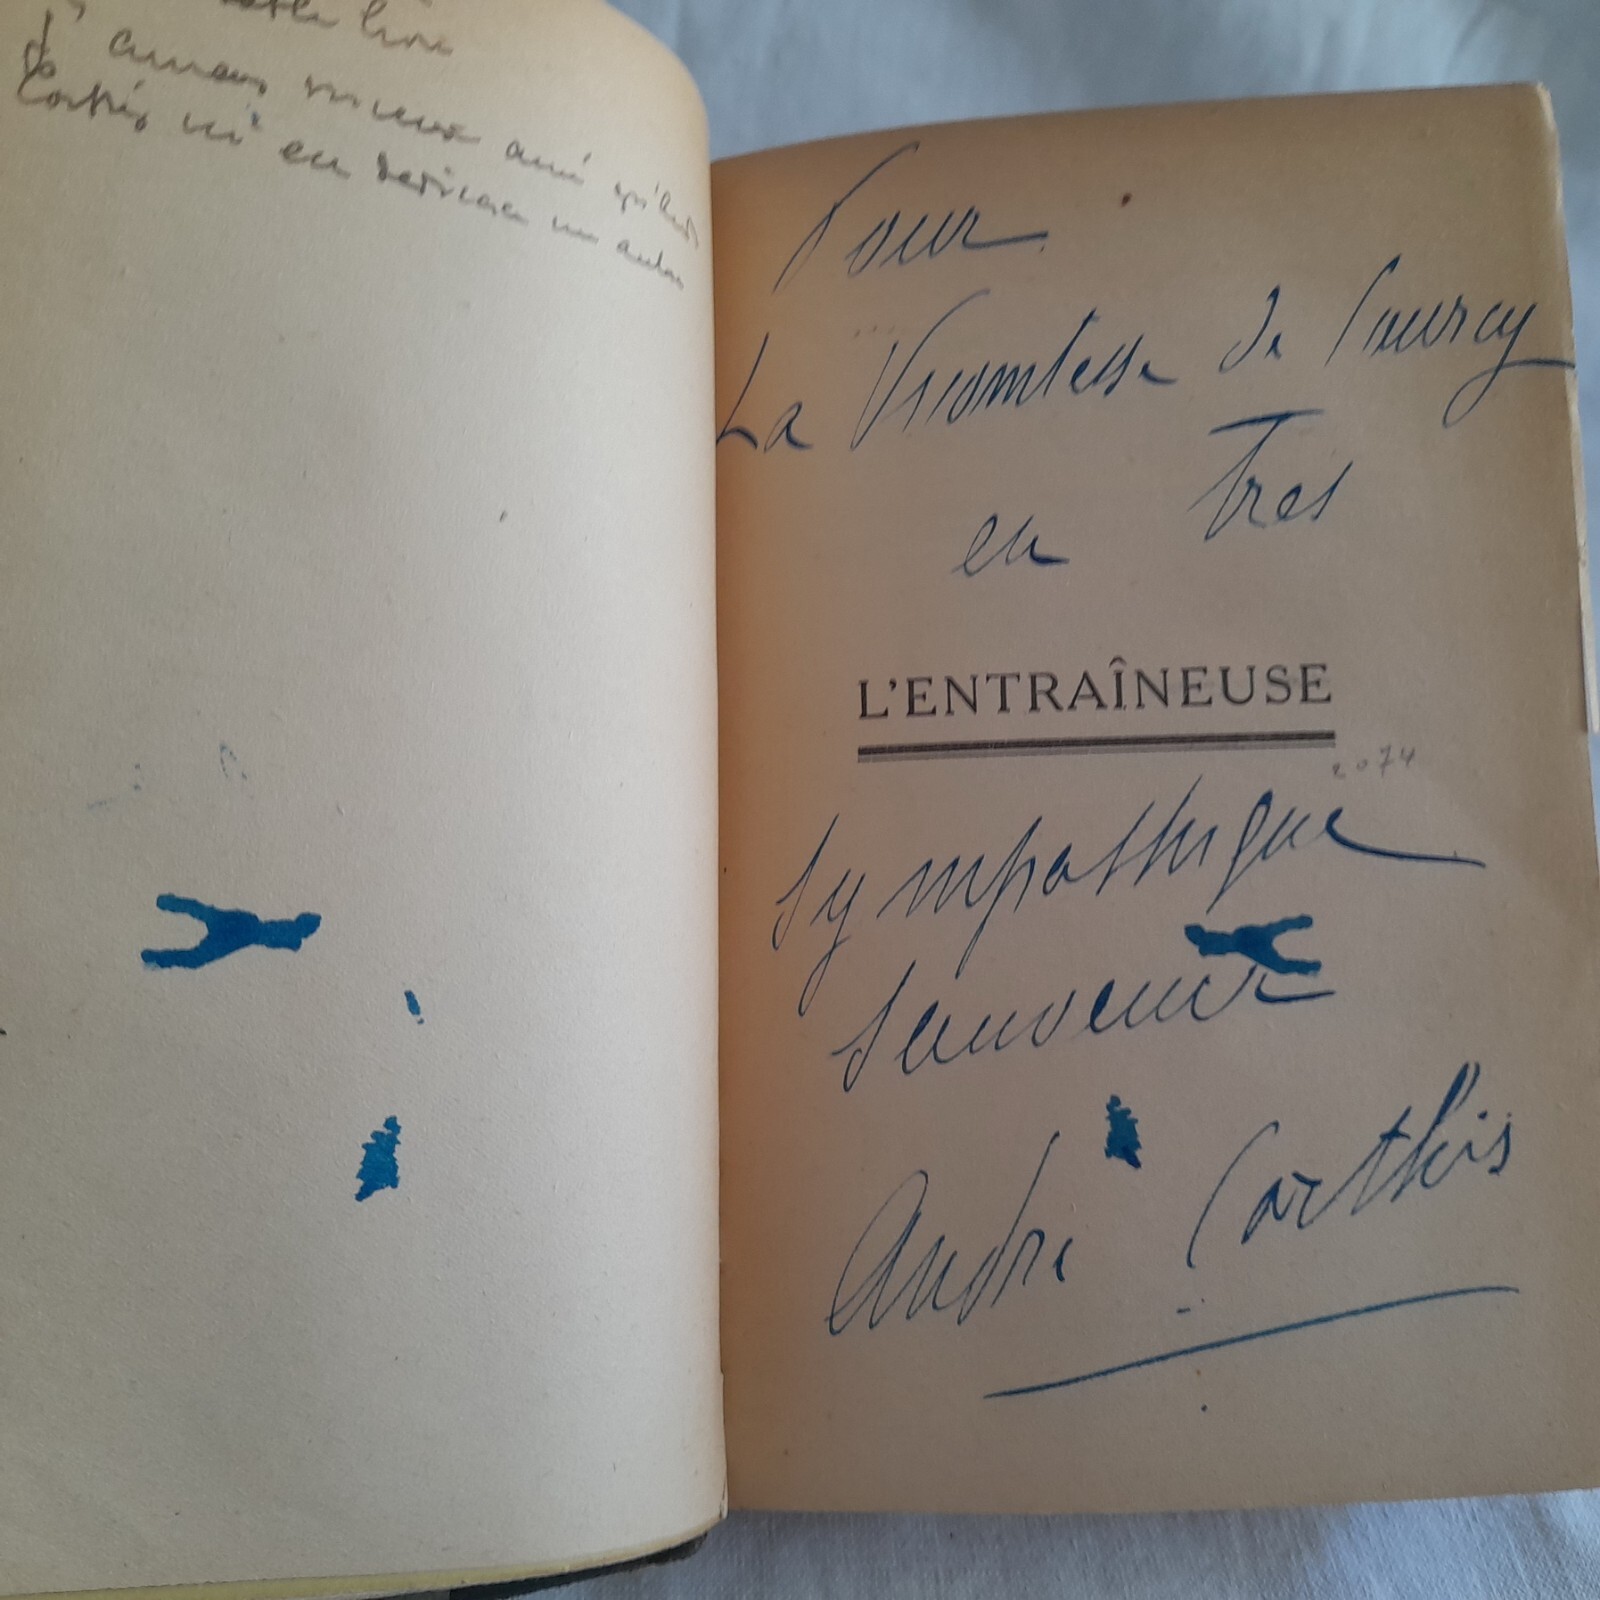 livre
j'aurais mieux aimé qu'André
Corthis m'en dédicace un autre
Pour
La Vicomtesse de Courcy
en Très
L'ENTRAÎNEUSE
2074
Sympathique
Souvenir
André Corthis